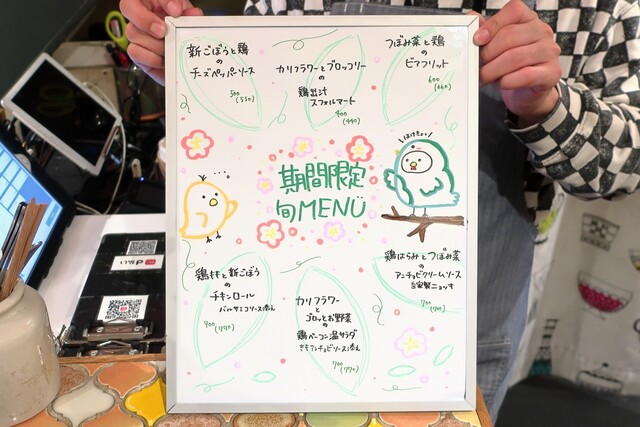 新ごぼうと鶏
の
チーズペッパーソース
500
(550)
カリフラワーとブロッコリー
の
鶏出汁
スフォルマート
400
(440)
つぼみ菜と鶏
の
ビアフリット
600
(660)
ほけきょっ
期間限定
旬MENU
鶏ももと新ごぼう
の
チキンロール
バルサミコソース添え
700(770)
カリフラワー
と
ゴロッとお野菜
の
鶏ベーコン温サラダ
700
(770)
鶏はらみとつぼみ菜
の
アンチョビクリームソース
自家製ニョッキ
700(770)